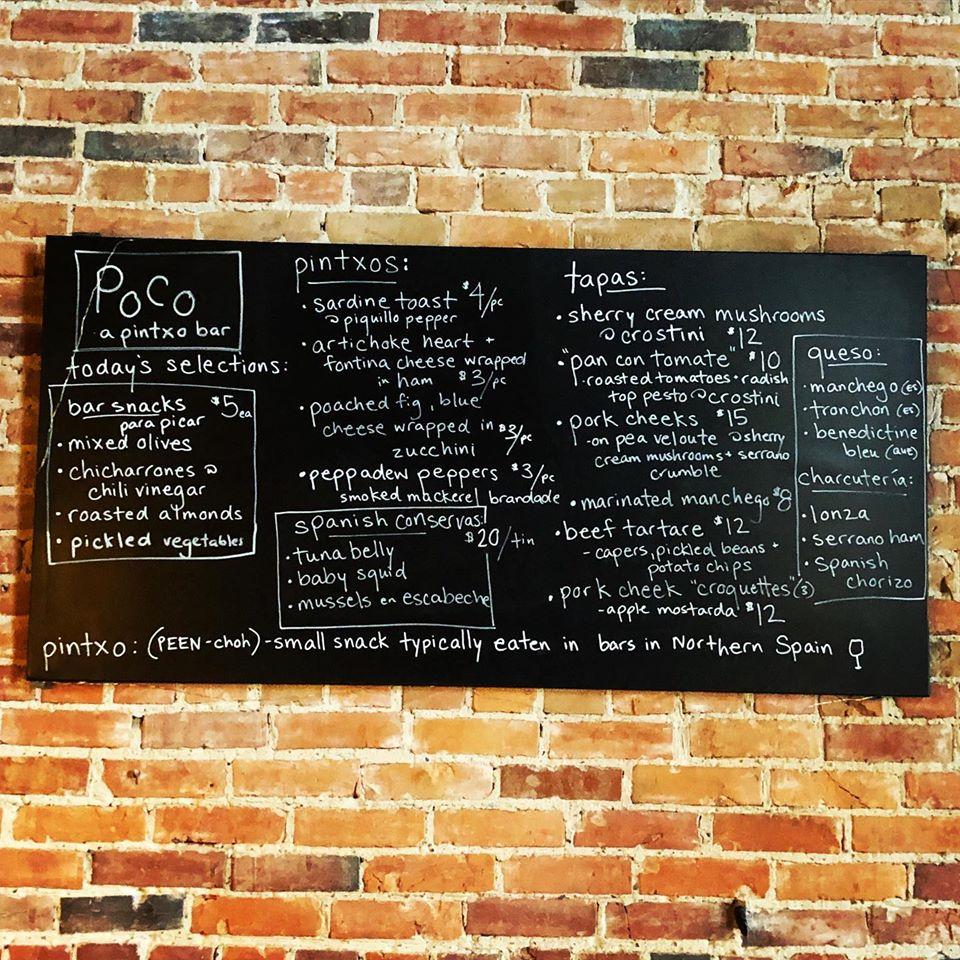 Poco
a pintxo bar
today's selections:
bar snacks $5 ea
para picar
• mixed olives
• chicharrones @
chili vinegar
• roasted almonds
• pickled vegetables
pintxos:
• sardine toast $4/pc
@ piquillo pepper
• artichoke heart +
fontina cheese wrapped
in ham $3/pc
• poached fig, blue
cheese wrapped in $3/pc
zucchini
• peppadew peppers $3/pc
smoked mackerel brandade
spanish conservas:
$20/tin
• tuna belly
• baby squid
• mussels en escabeche
tapas:
• sherry cream mushrooms
@ crostini $12
• "pan con tomate" $10
- roasted tomatoes + radish
top pesto @ crostini
• pork cheeks $15
- on pea veloute @ sherry
cream mushrooms + serrano
crumble
• marinated manchego $8
• beef tartare $12
- capers, pickled beans +
potato chips
• pork cheek "croquettes" (3)
- apple mostarda $12
queso:
• manchego (es)
• tronchon (es)
• benedictine
bleu
charcutería:
• lonza
• serrano ham
• Spanish
chorizo
pintxo: (PEEN-choh) - small snack typically eaten in bars in Northern Spain